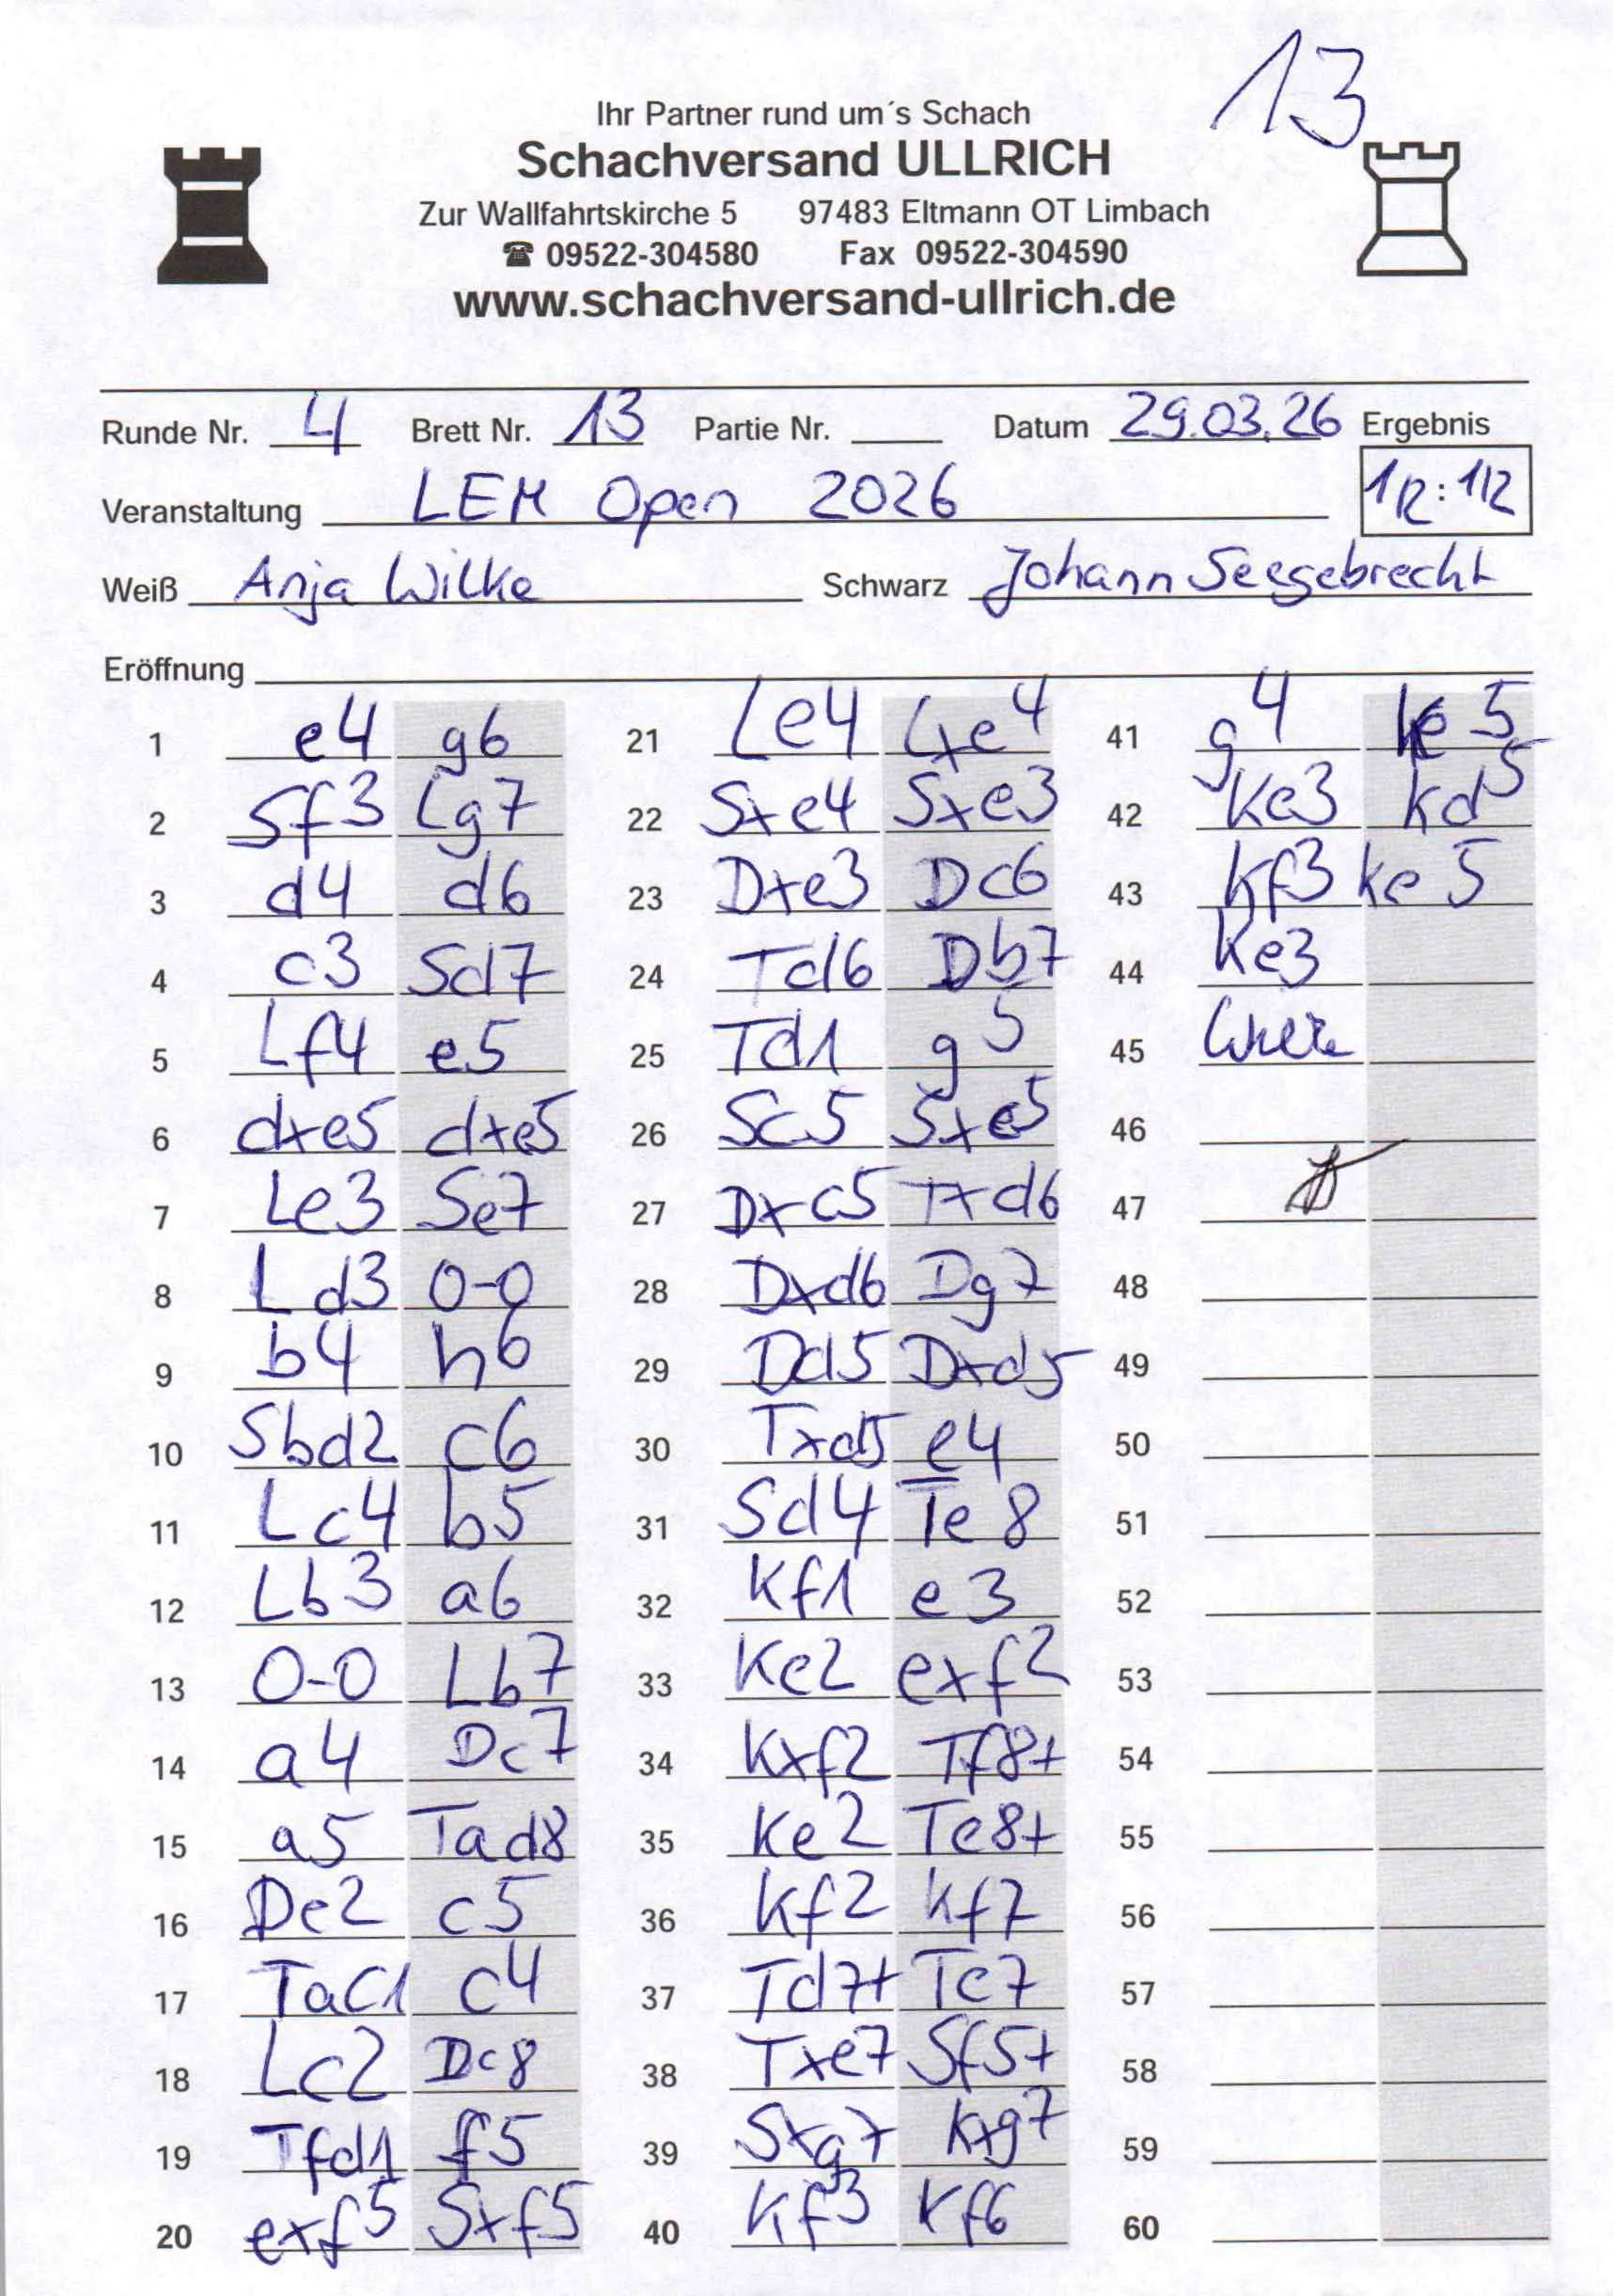 13
Ihr Partner rund um´s Schach
Schachversand ULLRICH
Zur Wallfahrtskirche 5 97483 Eltmann OT Limbach
☎ 09522-304580 Fax 09522-304590
www.schachversand-ullrich.de
Runde Nr. 4 Brett Nr. 13 Partie Nr. Datum 29.03.26 Ergebnis
Veranstaltung LEM Open 2026 1/2:1/2
Weiß Anja Wilke Schwarz Johann Seegebrecht
Eröffnung
1 e4 g6 21 Le4 Lxe4 41 g4 Ke5
2 Sf3 Lg7 22 Sxe4 Sxe3 42 Ke3 Kd5
3 d4 d6 23 Dxe3 Dc6 43 Kf3 Ke5
4 c3 Sd7 24 Td6 Db7 44 Ke3
5 Lf4 e5 25 Td1 g5 45
6 dxe5 dxe5 26 Sc5 Sxc5 46
7 Le3 Se7 27 Dxc5 Txd6 47
8 Ld3 0-0 28 Dxd6 Dg7 48
9 b4 h6 29 Dd5 Dxd5 49
10 Sbd2 c6 30 Txd5 e4 50
11 Lc4 b5 31 Sd4 Te8 51
12 Lb3 a6 32 Kf1 e3 52
13 0-0 Lb7 33 Ke2 exf2 53
14 a4 Dc7 34 Kxf2 Tf8+ 54
15 a5 Tad8 35 Ke2 Te8+ 55
16 De2 c5 36 Kf2 Kf7 56
17 Tac1 c4 37 Td7+ Te7 57
18 Lc2 Dc8 38 Txe7 Sf5+ 58
19 Tfd1 f5 39 Sxg7 Kxg7 59
20 exf5 Sxf5 40 Kf3 Kf6 60